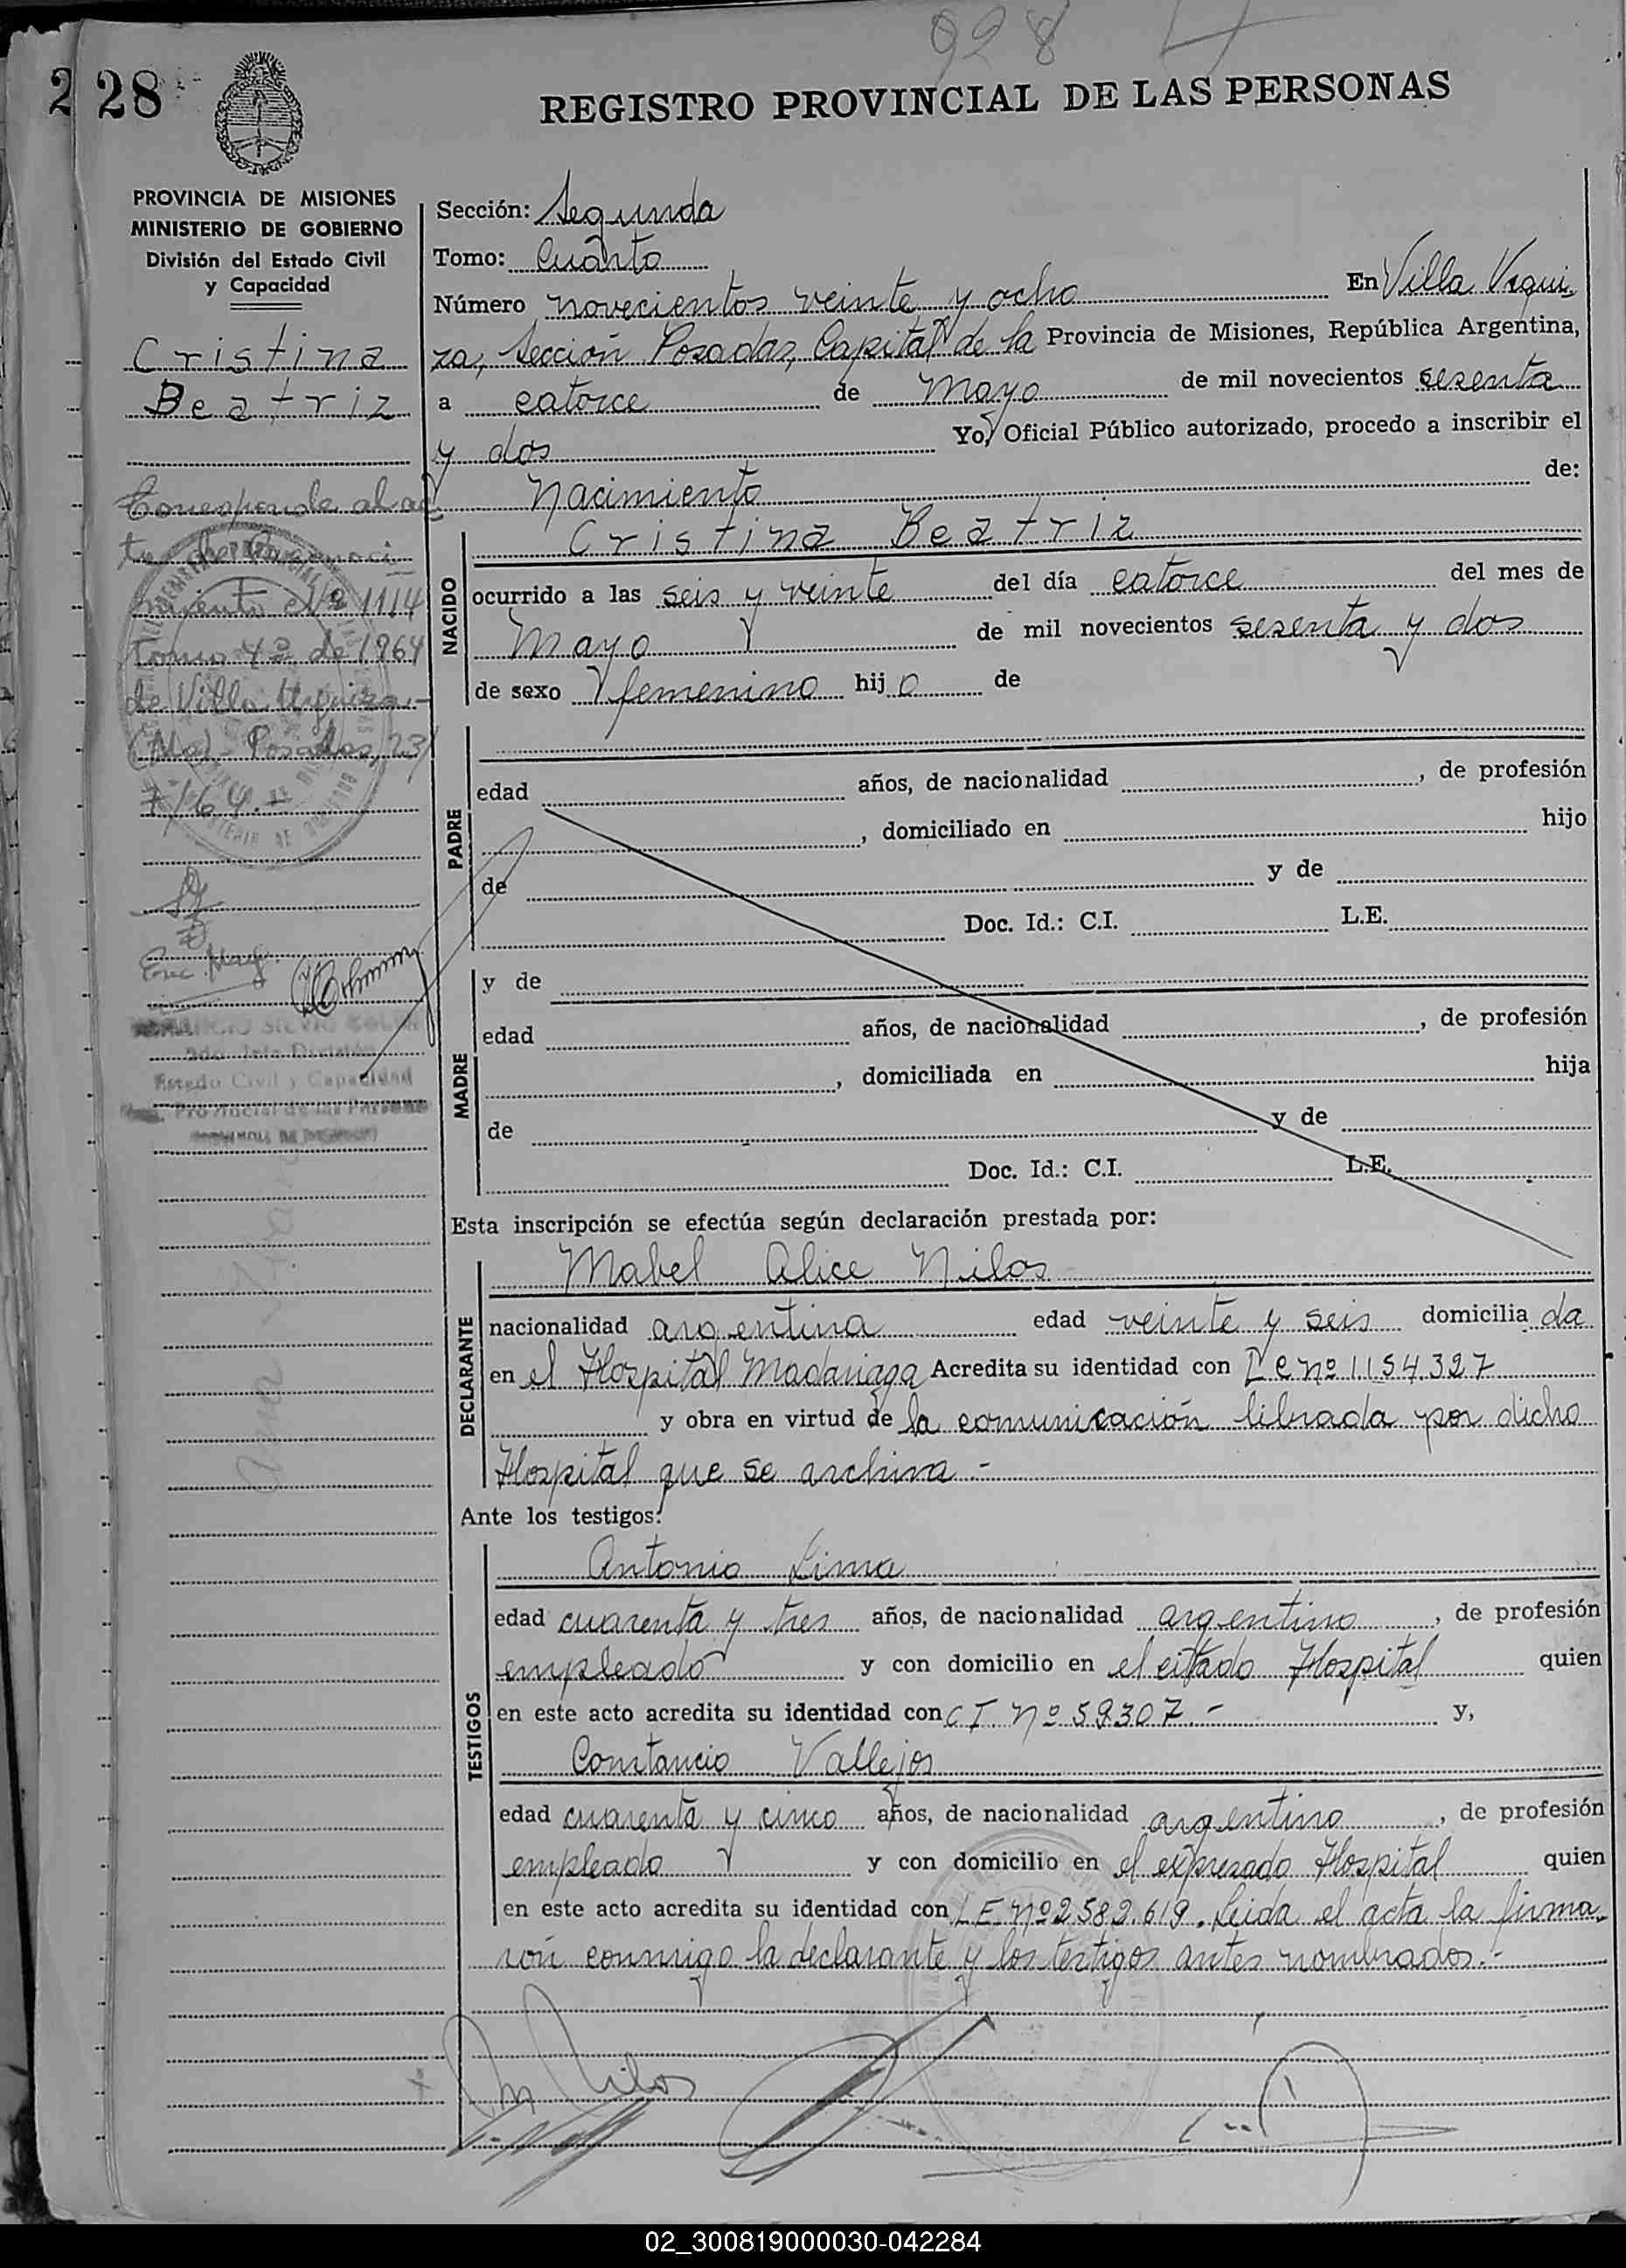 928
2 28
REGISTRO PROVINCIAL DE LAS PERSONAS
PROVINCIA DE MISIONES
MINISTERIO DE GOBIERNO
División del Estado Civil
y Capacidad
Cristina
Beatriz
Corresponde al ac
ta de Reconoci
miento Nº 1114
tomo 4º de 1964
de Villa Urquiza.-
(Mnes)- Posadas, 23/
7/64.-
Enc. Marg.
2do. Jefe División
Estado Civil y Capacidad
Reg. Provincial de las Personas
Sección: Segunda
Tomo: Cuarto
Número novecientos veinte y ocho En Villa Urqui-
za, Sección Posadas, Capital de la Provincia de Misiones, República Argentina,
a catorce de Mayo de mil novecientos sesenta
y dos Yo, Oficial Público autorizado, procedo a inscribir el
Nacimiento de:
NACIDO
Cristina Beatriz
ocurrido a las seis y veinte del día catorce del mes de
Mayo de mil novecientos sesenta y dos
de sexo femenino hij o de
PADRE
edad años, de nacionalidad , de profesión
, domiciliado en hijo
de y de
Doc. Id.: C.I. L.E.
MADRE
y de
edad años, de nacionalidad , de profesión
, domiciliada en hija
de y de
Doc. Id.: C.I. L.E.
Esta inscripción se efectúa según declaración prestada por:
DECLARANTE
Mabel Alice Nilos
nacionalidad argentina edad veinte y seis domicilia da
en el Hospital Madariaga Acredita su identidad con L C nº 1.154.327
y obra en virtud de la comunicación librada por dicho
Hospital que se archiva.-
Ante los testigos:
TESTIGOS
Antonio Lima
edad cuarenta y tres años, de nacionalidad argentino , de profesión
empleado y con domicilio en el citado Hospital quien
en este acto acredita su identidad con C I. Nº 59307.- y,
Constancio Vallejos
edad cuarenta y cinco años, de nacionalidad argentino , de profesión
empleado y con domicilio en el expresado Hospital quien
en este acto acredita su identidad con L E. Nº 2.582.619. Leida el acta la firma-
rón conmigo la declarante y los testigos antes nombrados.-
M Nilos
02_300819000030-042284